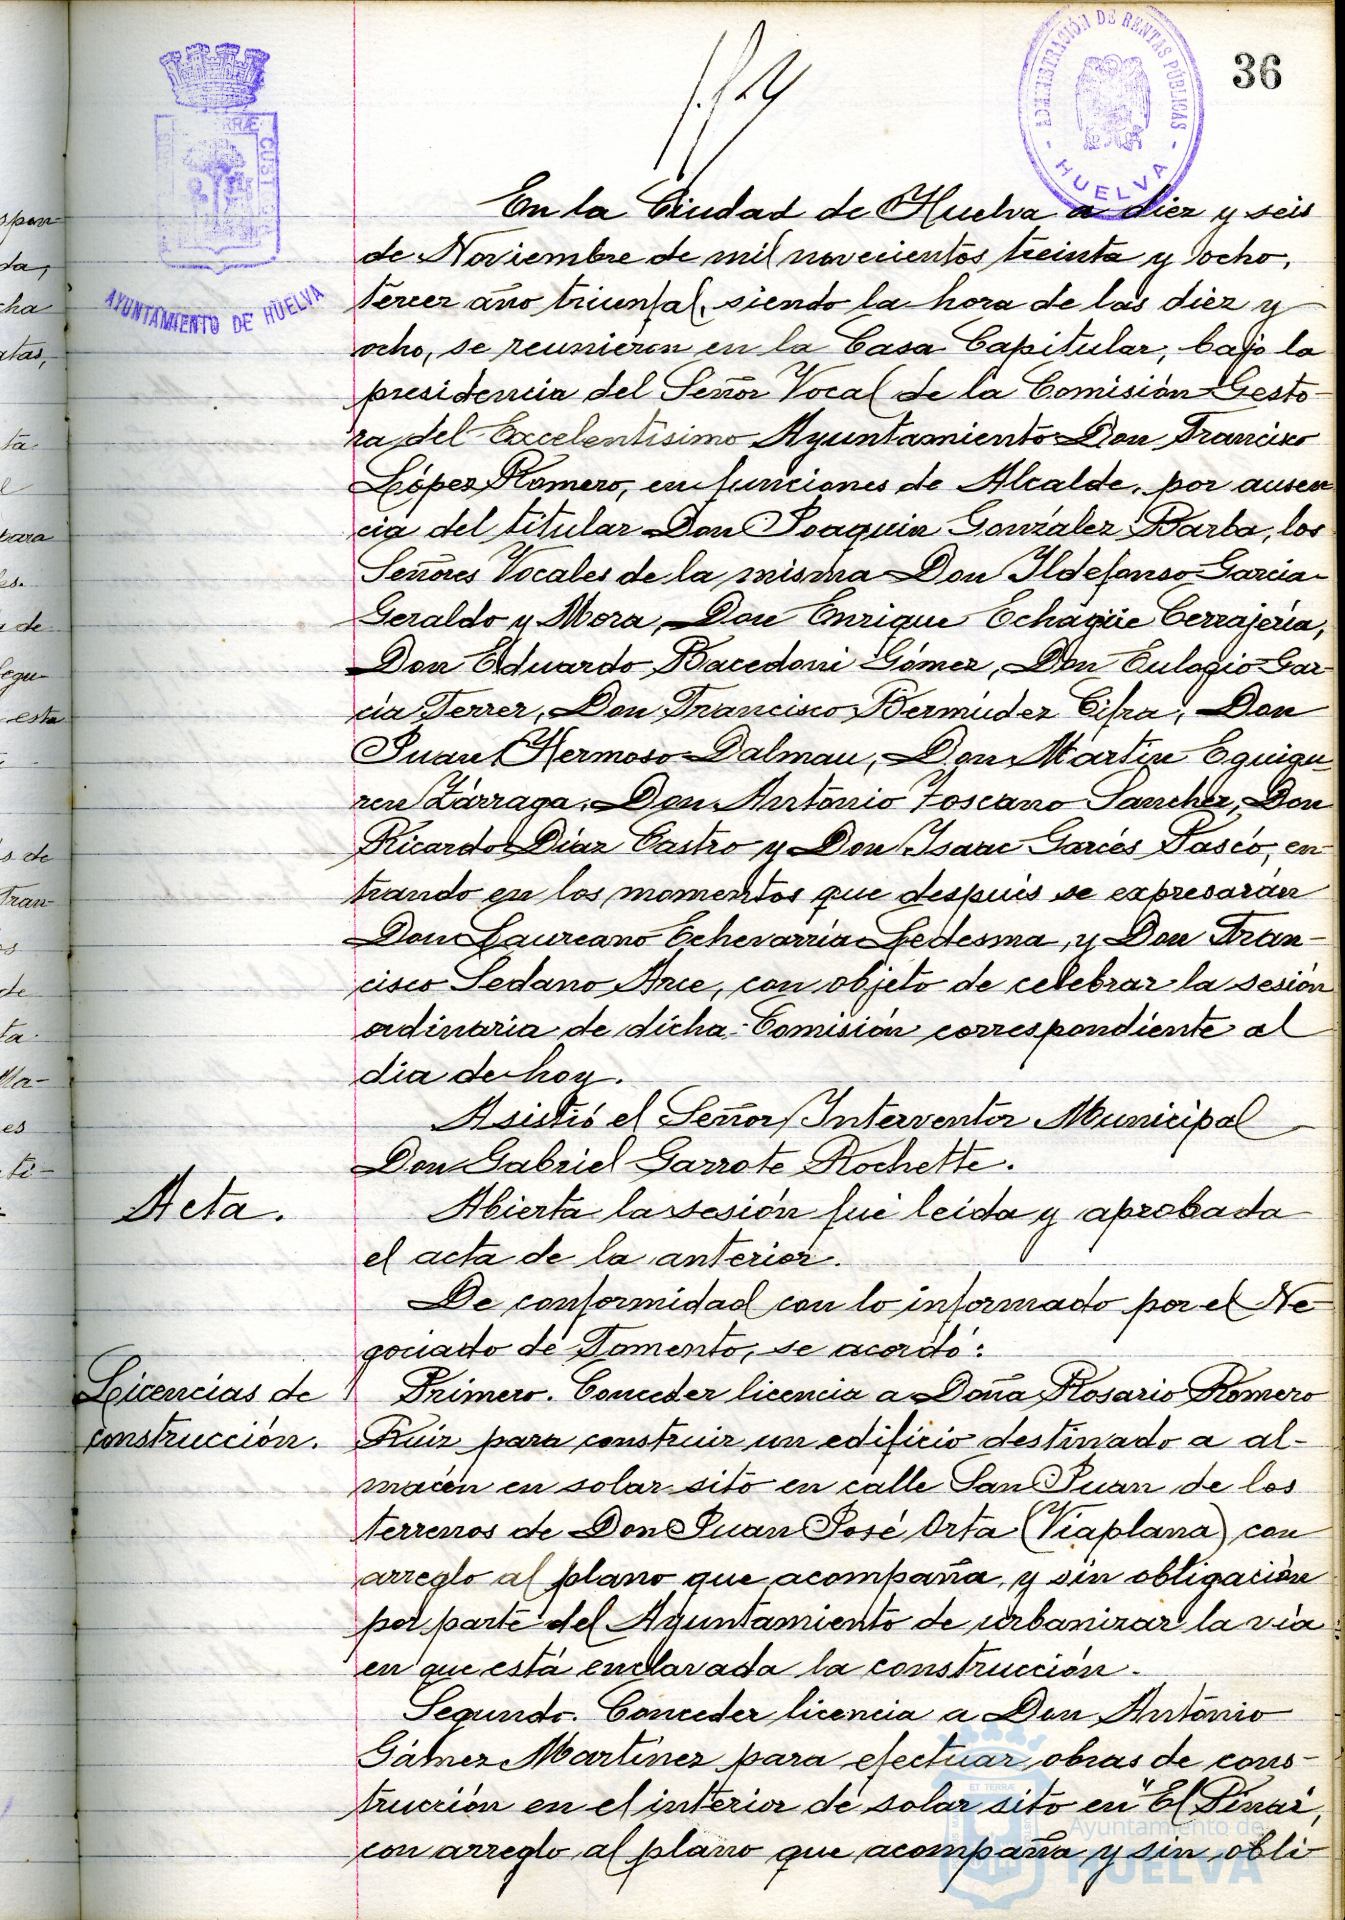 36
ADMINISTRACIÓN DE RENTAS PÚBLICAS
- HUELVA -
AYUNTAMIENTO DE HUELVA
En la Ciudad de Huelva a diez y seis
de Noviembre de mil novecientos treinta y ocho,
tercer año triunfal, siendo la hora de las diez y
ocho, se reunieron en la Casa Capitular, bajo la
presidencia del Señor Vocal de la Comisión Gesto-
ra del Excelentísimo Ayuntamiento Don Francisco
López Romero, en funciones de Alcalde, por ausen
cia del titular Don Joaquin González Barba, los
Señores Vocales de la misma Don Ildefonso Garcia-
Geraldo y Mora, Don Enrique Echagüe Cerrajería,
Don Eduardo Bacedoni Gómez, Don Eulogio Gar-
cía Ferrer, Don Francisco Bermúdez Cifra, Don
Juan Hermoso Dalmau, Don Martin Eguigu-
ren Zárraga, Don Antonio Toscano Sanchez, Don
Ricardo Díaz Castro y Don Isaac Garcés Pascó, en-
trando en los momentos que después se expresarán
Don Laureano Echevarría Ledesma, y Don Fran-
cisco Sedano Arce, con objeto de celebrar la sesión
ordinaria de dicha Comisión correspondiente al
dia de hoy.
Asistió el Señor Interventor Municipal
Don Gabriel Garrote Rochette.
Acta.
Abierta la sesión fué leida y aprobada
el acta de la anterior.
De conformidad con lo informado por el Ne-
gociado de Fomento, se acordó:
Licencias de
construcción.
Primero. Conceder licencia a Doña Rosario Romero
Ruiz para construir un edificio destinado a al-
macén en solar sito en calle San Juan de los
terrenos de Don Juan José Orta (Viaplana) con
arreglo al plano que acompaña, y sin obligación
por parte del Ayuntamiento de urbanizar la vía
en que está enclavada la construcción.
Segundo. Conceder licencia a Don Antonio
Gámez Martínez para efectuar obras de cons-
trucción en el interior de solar sito en "El Pinar",
con arreglo al plano que acompaña y sin obli-
Ayuntamiento de
HUELVA